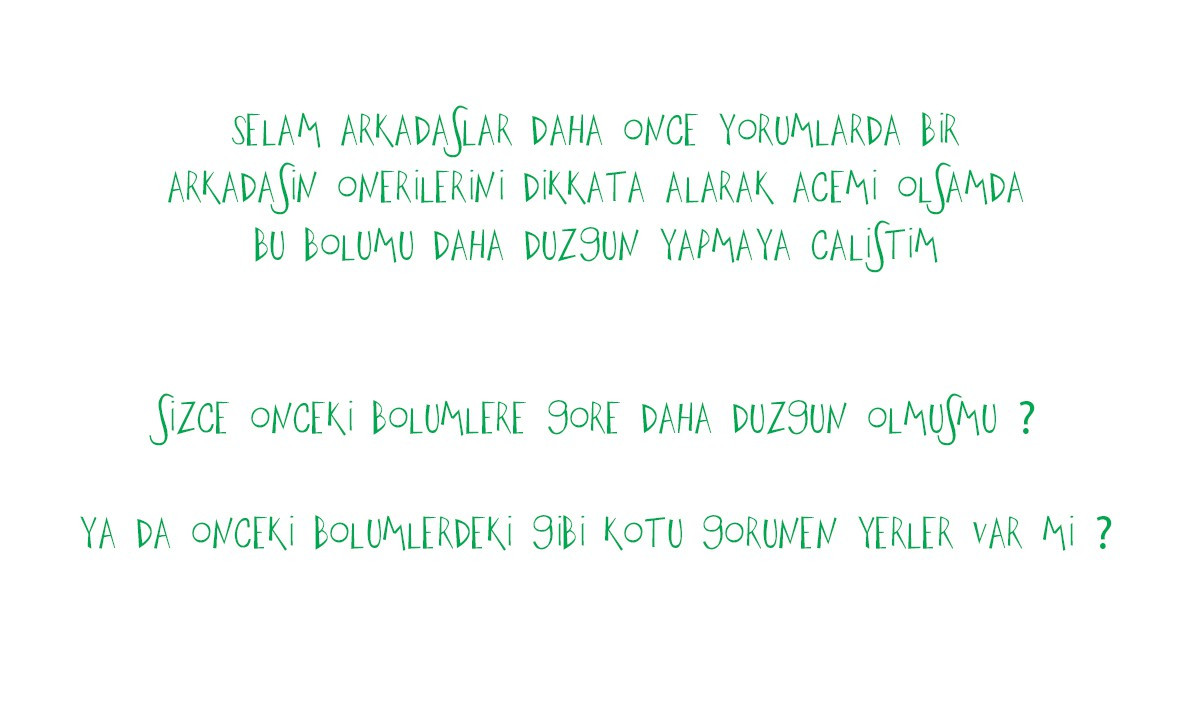 SELAM ARKADASLAR DAHA ONCE YORUMLARDA BİR
ARKADASİN ONERİLERİNİ DİKKATA ALARAK ACEMİ OLSAMDA
BU BOLUMU DAHA DUZGUN YAPMAYA CALİSTİM
SİZCE ONCEKİ BOLUMLERE GORE DAHA DUZGUN OLMUSMU ?
YA DA ONCEKİ BOLUMLERDEKİ GİBİ KOTU GORUNEN YERLER VAR Mİ ?